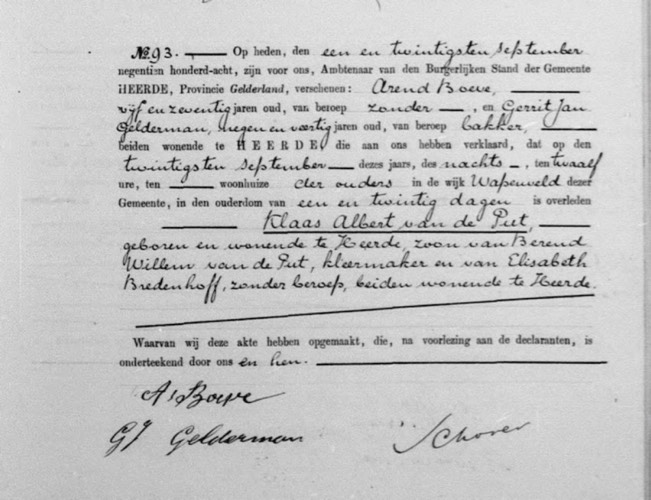 No 93. Op heden, den een en twintigsten september
negentien honderd-acht, zijn voor ons, Ambtenaar van den Burgerlijken Stand der Gemeente
HEERDE, Provincie Gelderland, verschenen: Arend Boeve,
vijf en zeventig jaren oud, van beroep zonder —, en Gerrit Jan
Gelderman, negen en veertig jaren oud, van beroep bakker,
beiden wonende te HEERDE die aan ons hebben verklaard, dat op den
twintigsten september — dezes jaars, des nachts —, ten twaalf
ure, ten — woonhuize der ouders in de wijk Wapenveld dezer
Gemeente, in den ouderdom van een en twintig dagen is overleden
Klaas Albert van de Put,
geboren en wonende te Heerde, zoon van Berend
Willem van de Put, kleermaker en van Elisabeth
Bredenhoff, zonder beroep, beiden wonende te Heerde.
Waarvan wij deze akte hebben opgemaakt, die, na voorlezing aan de declaranten, is
onderteekend door ons en hen.
A. Boeve
GJ Gelderman